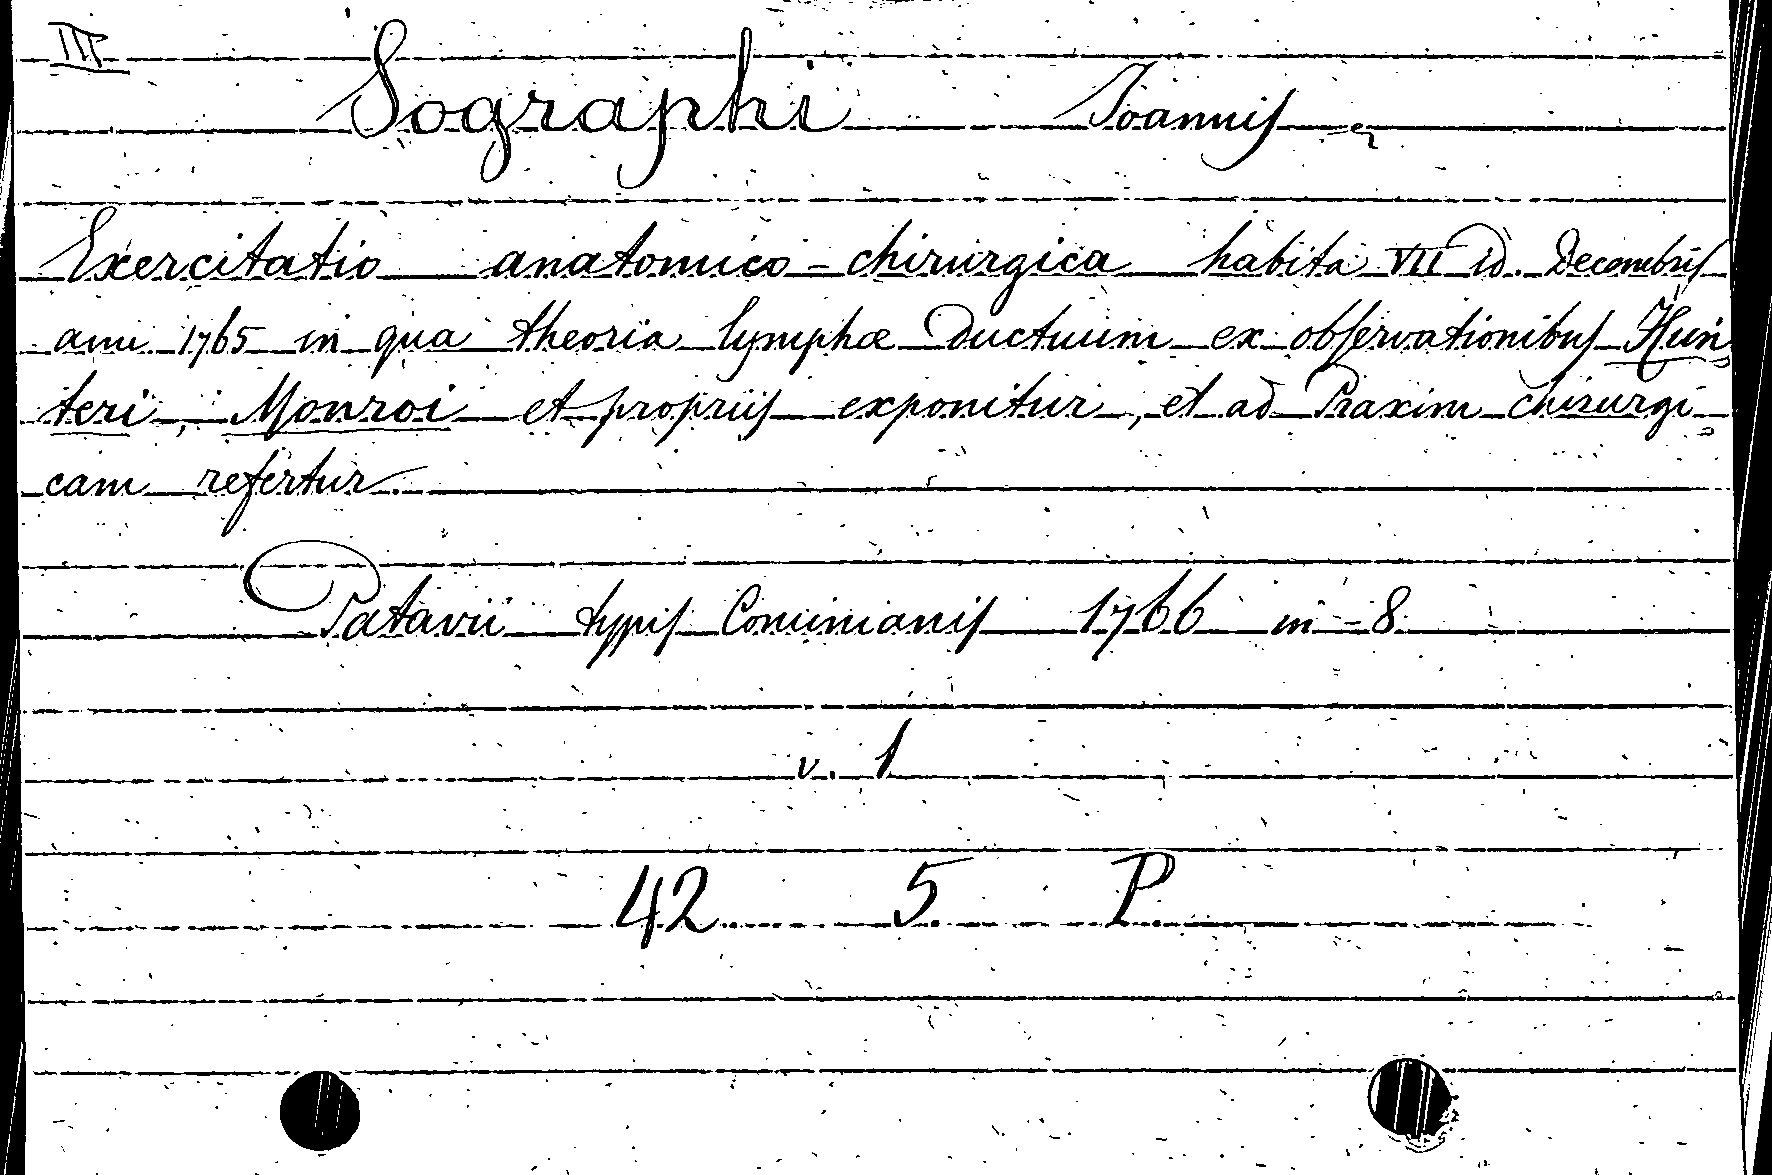 III
Sographi Joannis
Exercitatio anatomico-chirurgica habita VII id. Decembris
anni 1765 in qua theoria lymphæ ductuum ex observationibus Hun
teri, Monroi et propriis exponitur, et ad Praxim chirurgi-
cam refertur.
Patavii typis Cominianis 1766 in-8.
v. 1
42 5. P.